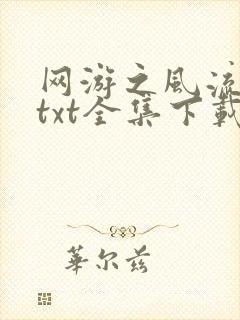 网游之风流
txt全集下载
華尔兹